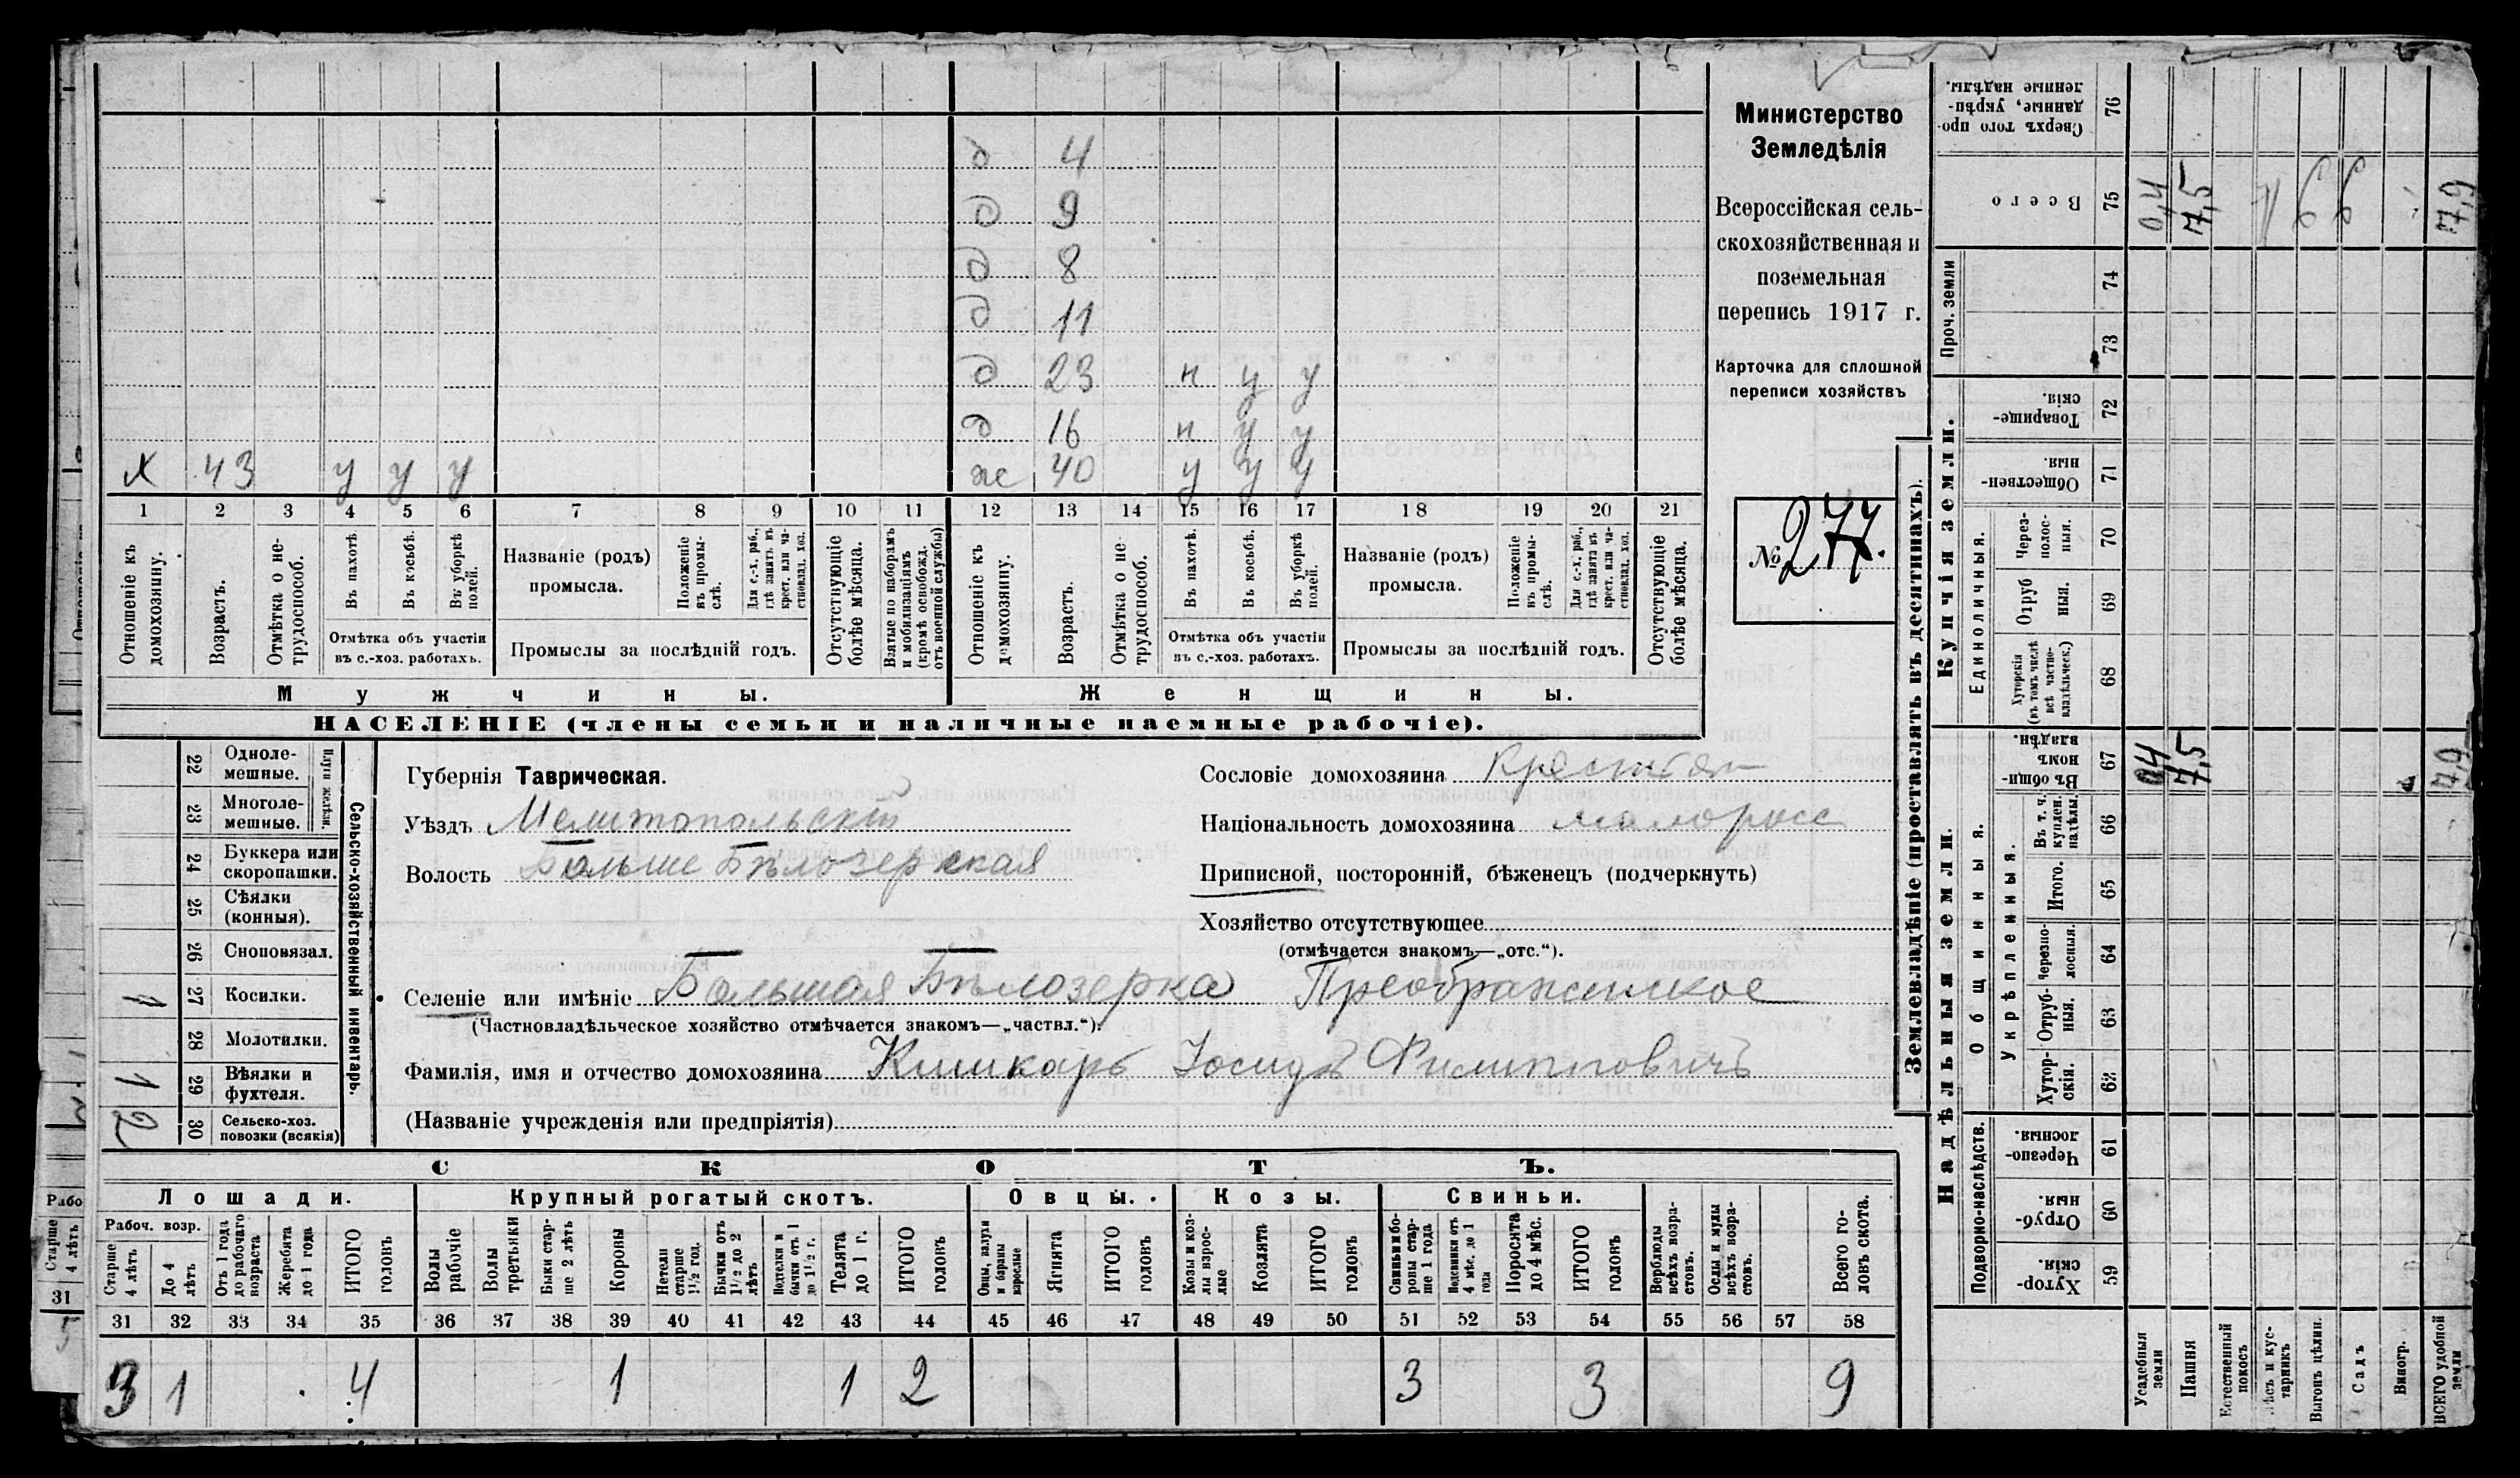 д 4
д 9
д 8
д 11
д 23 н у у
д 16 н у у
х 43 у у у ж 40 у у у
1 2 3 4 5 6 7 8 9 10 11 12 13 14 15 16 17 18 19 20 21
Отношеніе къ домохозяину.
Возрастъ.
Отмѣтка о не-трудоспособ.
Въ пахотѣ.
Въ косьбѣ.
Въ уборкѣ полей.
Отмѣтка объ участіи
въ с.-хоз. работахъ.
Названіе (родъ)
промысла.
Положеніе въ промы-слѣ.
Для с.-х. раб., гдѣ занятъ въ крест. или ча-стновлад. хоз.
Промыслы за послѣдній годъ.
Отсутствующіе болѣе мѣсяца.
Взятые по наборамъ и мобилизаціямъ (кромѣ освобожд. отъ военной службы)
Отношеніе къ домохозяину.
Возрастъ.
Отмѣтка о не-трудоспособ.
Въ пахотѣ.
Въ косьбѣ.
Въ уборкѣ полей.
Отмѣтка объ участіи
въ с.-хоз. работахъ.
Названіе (родъ)
промысла.
Положеніе въ промы-слѣ.
Для с.-х. раб., гдѣ занята въ крест. или ча-стновлад. хоз.
Промыслы за послѣдній годъ.
Отсутствующіе болѣе мѣсяца.
Мужчины.
Женщины.
НАСЕЛЕНІЕ (члены семьи и наличные наемные рабочіе).
Министерство
Земледѣлія
Всероссійская сель-
скохозяйственная и
поземельная
перепись 1917 г.
Карточка для сплошной
переписи хозяйствъ
№ 277.
22 Одноле-мешные.
23 Многоле-мешные.
Плуги желѣзн.
24 Буккера или скоропашки.
25 Сѣялки (конныя).
26 Сноповязал.
27 Косилки. 1
28 Молотилки.
29 Вѣялки и фухтеля. 1
30 Сельско-хоз. повозки (всякія) 2
Сельско-хозяйственный инвентарь.
Губернія Таврическая.
Уѣздъ Мелитопольскій
Волость Больше Бѣлозерская
Сословіе домохозяина Крестьян
Національность домохозяина малоросс
Приписной, посторонній, бѣженецъ (подчеркнуть)
Хозяйство отсутствующее
(отмѣчается знакомъ—„отс.“).
Селеніе или имѣніе Большая Бѣлозерка Преображенское
(Частновладѣльческое хозяйство отмѣчается знакомъ—„частвл.“).
Фамилія, имя и отчество домохозяина Кишкарь Іосифъ Филипповичъ
(Названіе учрежденія или предпріятія)
СКОТЪ.
Лошади. Крупный рогатый скотъ. Овцы. Козы. Свиньи.
Рабоч. возр.
Старше 4 лѣтъ
До 4 лѣтъ
Отъ 1 года до рабочаго возраста
Жеребята до 1 года
ИТОГО головъ
Волы рабочіе
Волы третьяки
Быки стар-ше 2 лѣтъ
Коровы
Нетели старше 1½ год.
Бычки отъ 1½ до 2 лѣтъ
Подтелки и бычки отъ 1 до 1½ г.
Телята до 1 г.
ИТОГО головъ
Овцы, валухи и бараны взрослые
Ягнята
ИТОГО головъ
Козы и коз-лы взрос-лые
Козлята
ИТОГО головъ
Свиньи и бо-ровы стар-ше 1 года
Подсвинки отъ 4 мѣс. до 1 года
Поросята до 4 мѣс.
ИТОГО головъ
Верблюды всѣхъ возра-стовъ.
Ослы и мулы всѣхъ возра-стовъ.
Всего го-ловъ скота.
31 32 33 34 35 36 37 38 39 40 41 42 43 44 45 46 47 48 49 50 51 52 53 54 55 56 57 58
3 1 4 1 1 2 3 3 9
Рабо
Старше 4 лѣтъ
31
5
Землевладѣніе (проставлять въ десятинахъ).
Сверхъ того про-данные, укрѣп-ленные надѣлы. 76
Всего 75 0,4 7,5 7,9
Проч. земли
74
73
Купчія земли.
Товарище-скія. 72
Обществен-ныя. 71
Единоличныя.
Через-полос-ныя. 70
Отруб-ныя. 69
Хуторскія (въ томъ числѣ всѣ частно-владѣльческ.) 68
Надѣльныя земли.
Въ общи-номъ владѣн. 67 0,4 7,5 7,9
Общинныя.
Укрѣпленныя.
Въ т. ч. куплен. надѣлы. 66
Итого. 65
Черезпо-лосныя. 64
Отруб-ныя. 63
Хутор-скія. 62
Подворно-наслѣдств.
Черезпо-лосныя. 61
Отруб-ныя. 60
Хутор-скія. 59
Усадебныя земли
Пашня
Естественный покосъ
Лѣсъ и кус-тарникъ
Выгонъ цѣлин.
Садъ
Виногр.
ВСЕГО удобной земли